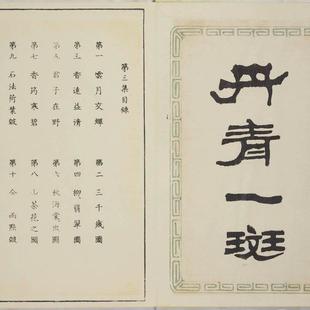 丹青一斑
第三集目錄
第一 雲月交輝
第二 三千歲圖
第三 香遠益清
第四 柳蔭翠圖
第五 君子在野
第六 秋海棠虫圖
第七 香筠寒碧
第八 山茶花之圖
第九 石法荷葉皴
第十 仝 雨點皴